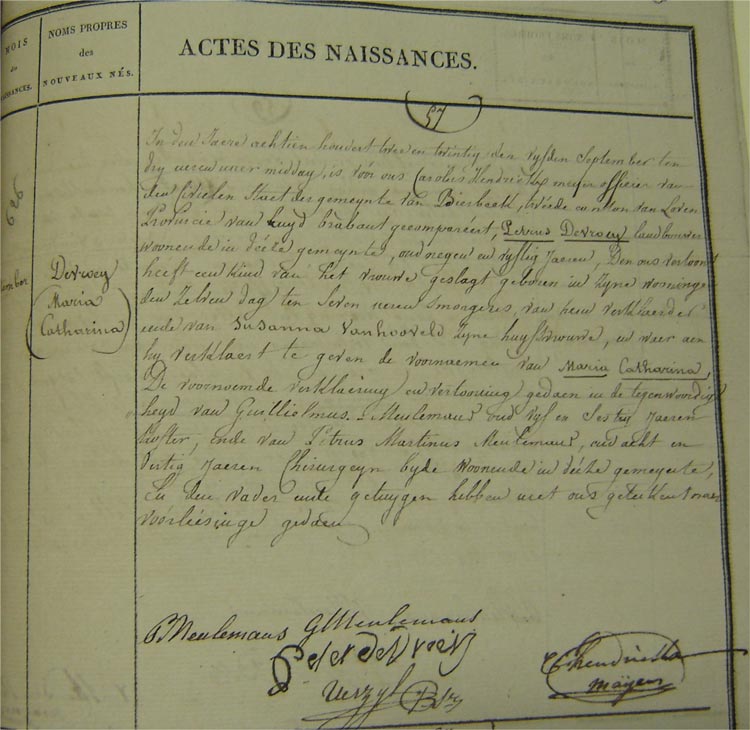 MOIS
des
NAISSANCES.
NOMS PROPRES
des
NOUVEAUX NÉS.
ACTES DES NAISSANCES.
57
Devroey
Maria
Catharina
In den Jaere achtien hondert twee en twintig den vyfden September ten
dry uren naer middag, is voor ons Carolus Hendrickx meyer officier van
den Civielen Staet der gemeynte van Bierbeek, tweede canton van Loven
Provincie van Zuyd braband gecompareert Petrus Devroey landbouwer
woonende in deese gemeynte, oud negen en vyftig Jaeren, Den ons vertoont
heeft een kind van het vrouwe geslagt geboren in zyne wooninge
den Zelven dag ten seven uren smorgens, van hem verklaerder
ende van Susanna Vanhooveld zyne huysvrouwe, en waer aen
hy verklaert te geven de voornaemen van Maria Catharina,
De voornoemde verklaering en vertooning gedaen in de tegenwoordig
heyd van Guillielmus Meulemans oud vyf en Sestig Jaeren
Coster, ende van Petrus Martinus Meulemans, oud acht en
Dertig Jaeren Chirurgeyn byde woonende in deese gemeynte,
En den vader ende getuygen hebben met ons geteekent naer
voorleesinge gedaen
P Meulemans G Meulemans
Peter deVroeij
C Hendrickx
mayeur